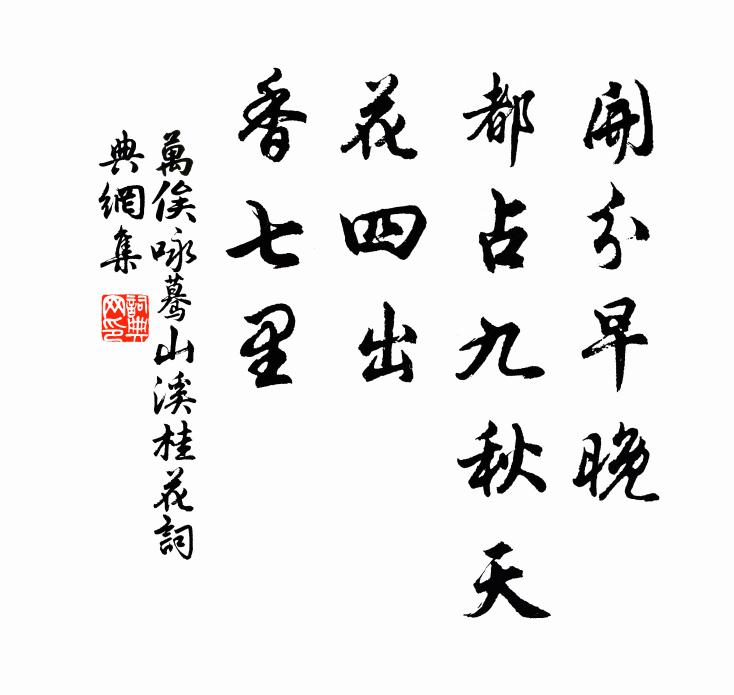 開分早晚
都占九秋天
花四出
香七里
萬俟咏蓦山溪桂花詞
典網集
詞典網印